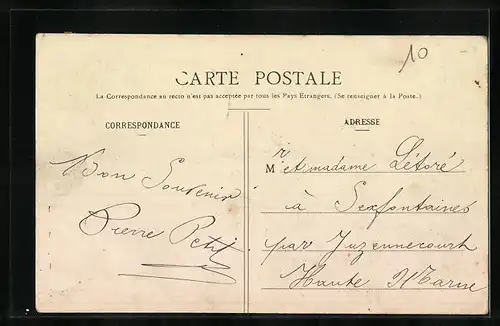 10
CARTE POSTALE
La Correspondance au recto n'est pas acceptée par tous les Pays Étrangers. (Se renseigner à la Poste.)
CORRESPONDANCE
Bon Souvenir
Pierre Petit
ADRESSE
Mr et madame Létoré
à Sexfontaines
par Juzennecourt
Haute Marne